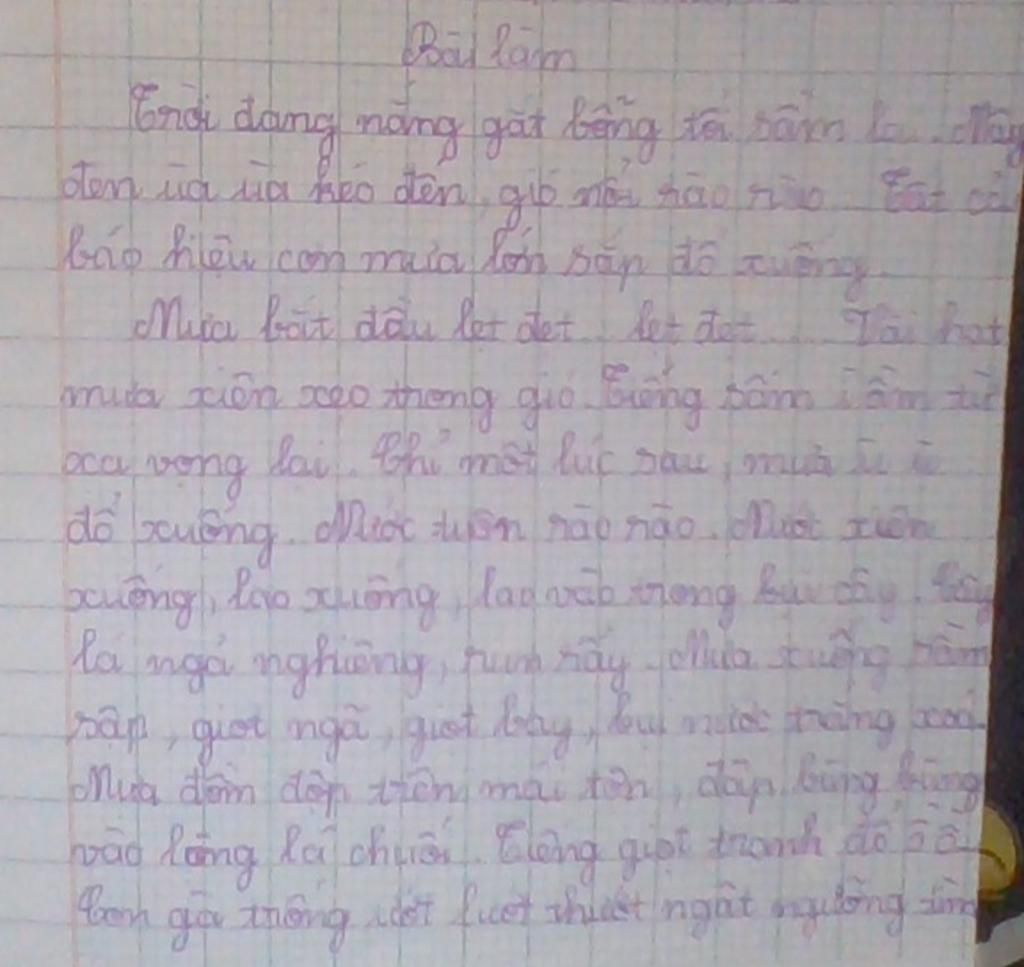 Bài làm
Trời đang nắng gắt bỗng tối sầm lại. Mây
đen ùa ùa kéo đến, gió nổi rào rào. Tất cả
báo hiệu cơn mưa lớn sắp đổ xuống.
Mưa bắt đầu lẹt đẹt... lẹt đẹt... Vài hạt
mưa xiên xẹo trong gió. Tiếng sấm ì ầm từ
xa vọng lại. Chỉ một lúc sau, mưa ù ù
đổ xuống. Nước tuôn rào rào. Nước xiên
xuống, lao xuống, lao vào trong bụi cây. Cây
lá ngả nghiêng, run rẩy. Mưa xuống rầm
rập, giọt ngã, giọt bay, bụi nước trắng xoá.
Mưa đồm độp trên mái tôn, đập bùng bùng
vào lòng lá chuối. Tiếng giọt tranh đổ ồ ồ.
Con gà trống ướt lướt thướt ngật ngưỡng tìm